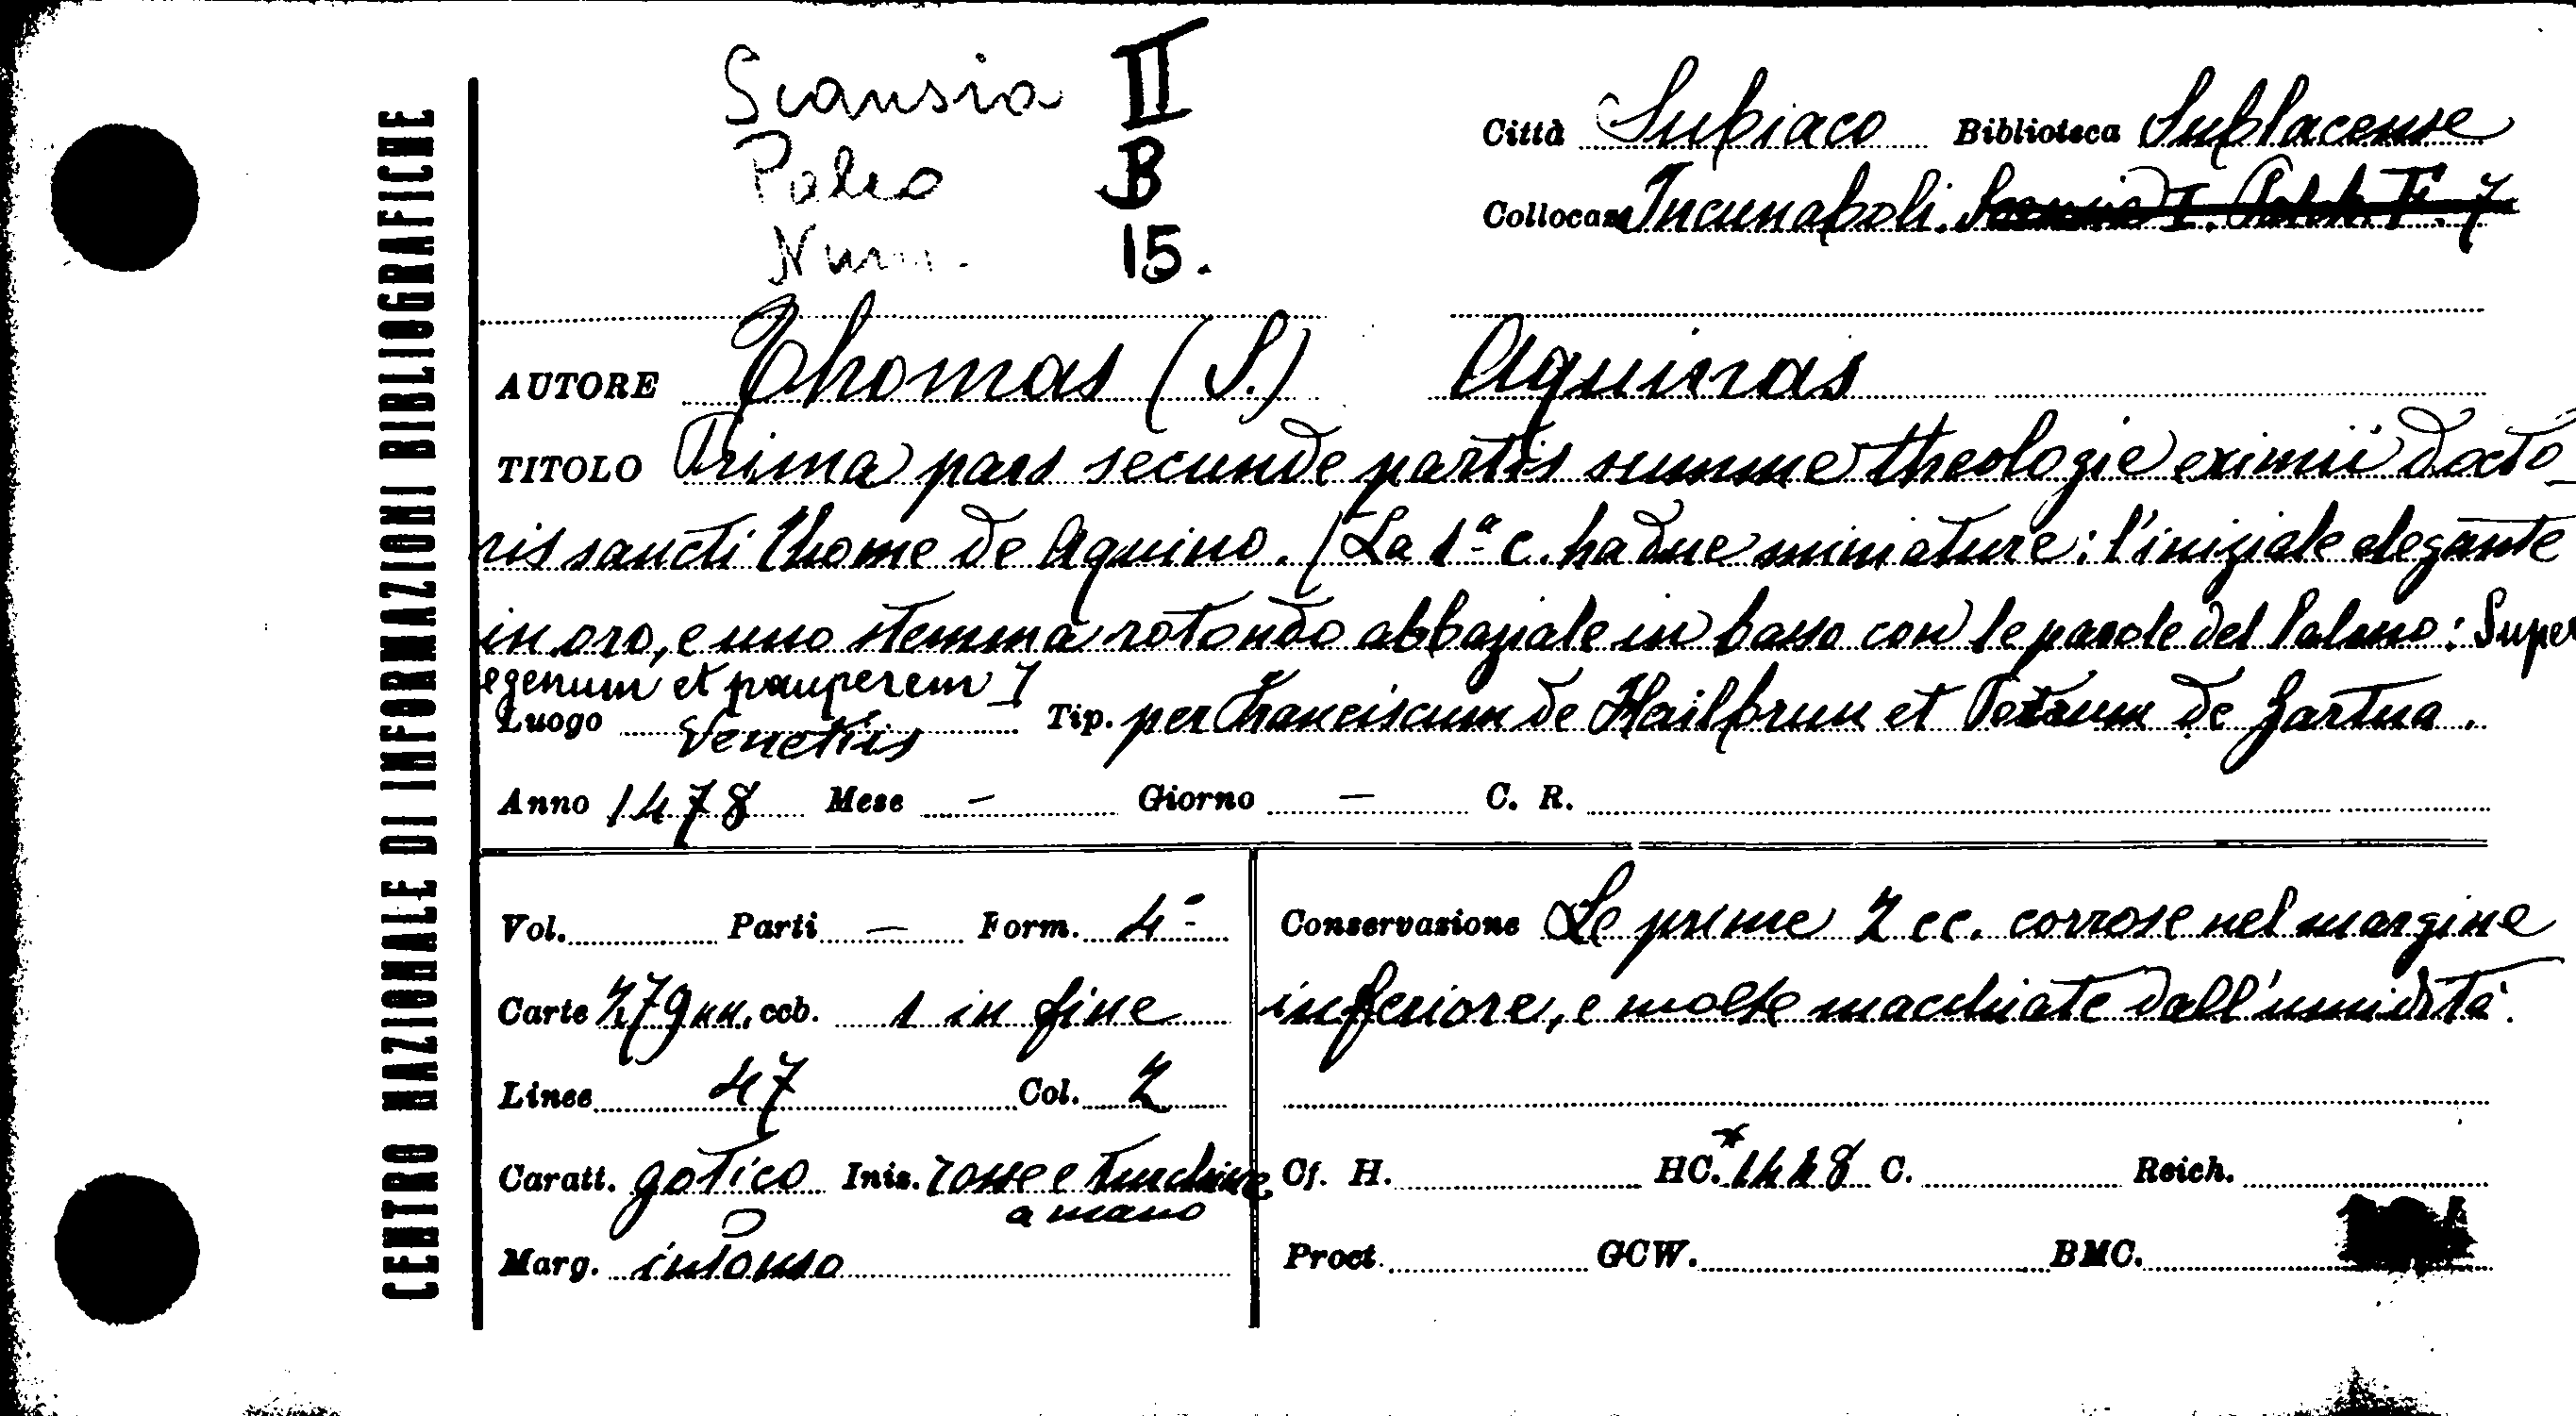 CENTRO NAZIONALE DI INFORMAZIONI BIBLIOGRAFICHE
Scansia II
Palco B
Num. 15.
Città Subiaco Biblioteca Sublacense
Collocaz. Incunaboli. I. 7
AUTORE Thomas (S.) Aquinas
TITOLO Prima pars secunde partis summe theologie eximii docto_
ris sancti Thome de Aquino. (La 1ª c. ha due miniature: l'iniziale elegante
in oro, e uno stemma rotondo abbaziale in basso con le parole del Salmo: Super
egenum et pauperem)
Luogo Venetiis Tip. per Franciscum de Hailbrun et Petrum de Hartua.
Anno 1478 Mese – Giorno – C. R.
Vol. Parti – Form. 4º
Carte 279 nn. ccb. 1 in fine
Linee 47 Col. 2
Caratt. gotico Iniz. rosse e turchine
a mano
Marg. intonso
Conservazione Le prime 2 cc. corrose nel margine
inferiore, e molte macchiate dall'umidità.
Cf. H. HC.* 1448 C. Reich.
Proct. GCW. BMC.